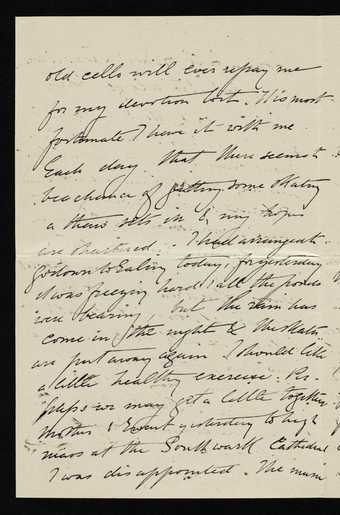 old cells will ever repay me
for my devotion to it. It is most
fortunate I have it with me.
Each day that there seems to
be a chance of getting some skating
a thaw sets in & my hopes
are shattered. I had arranged to
go down to Ealing today, for yesterday
it was freezing hard & all the ponds
were bearing, but the rain has
come in the night & the skates
are put away again. I should like
a little healthy exercise. Per-
haps we may get a little together.
Mother & I went yesterday to high
mass at the Southwark Cathedral
I was disappointed. The music